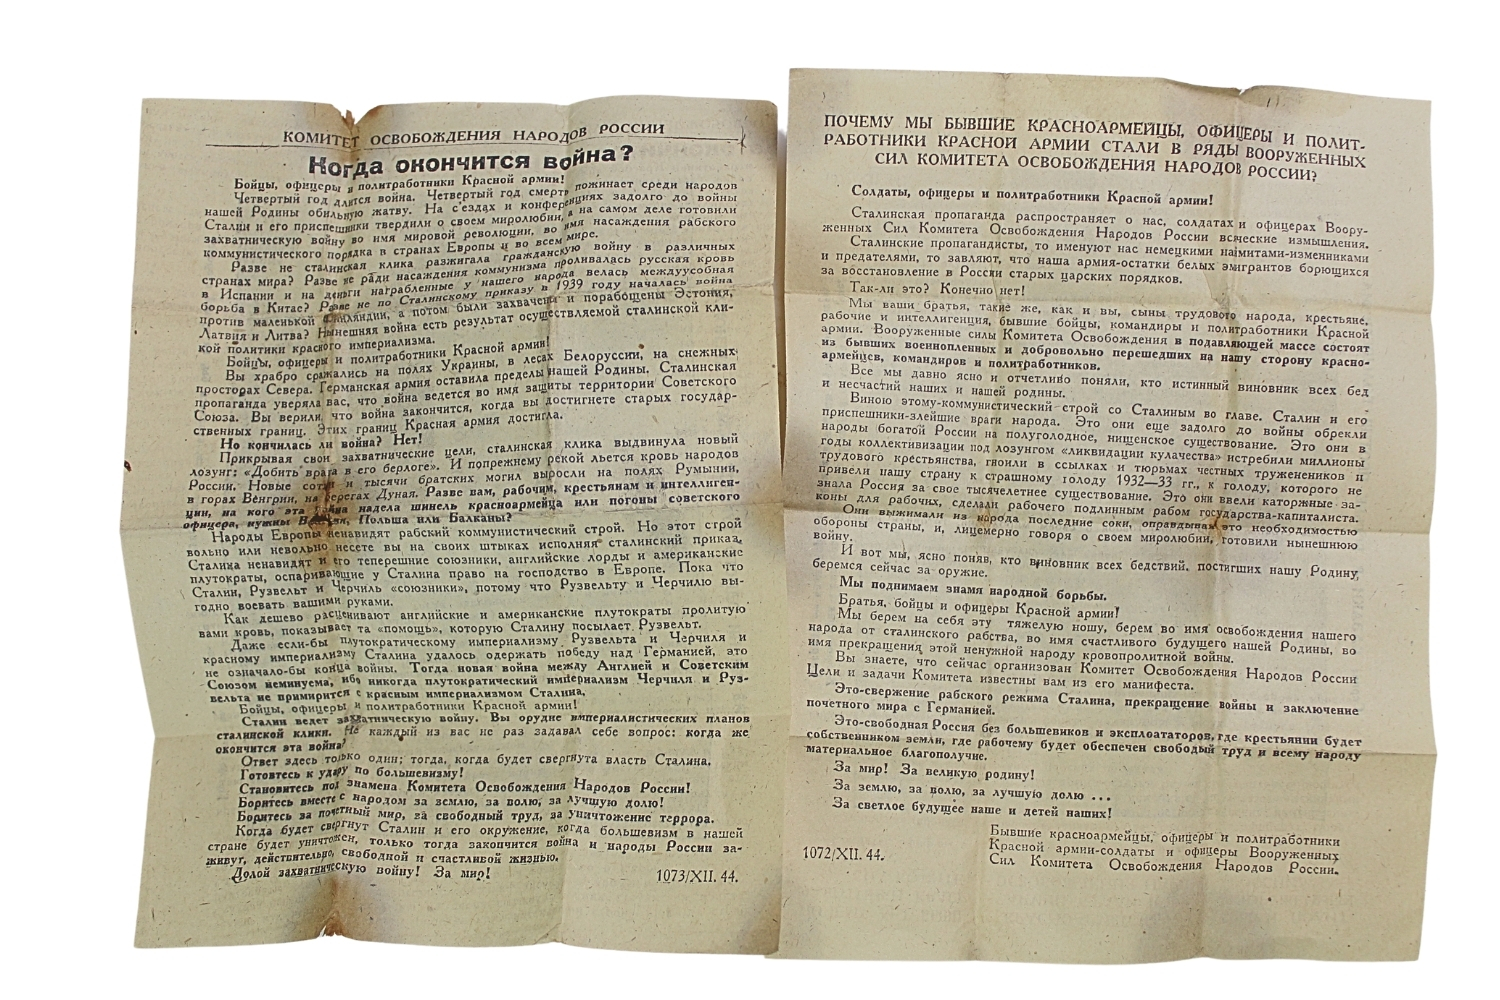 КОМИТЕТ ОСВОБОЖДЕНИЯ НАРОДОВ РОССИИ
Когда окончится война?
Бойцы, офицеры и политработники Красной армии!
Четвертый год длится война. Четвертый год смерть пожинает среди народов
нашей Родины обильную жатву. На с'ездах и конференциях задолго до войны
Сталин и его приспешники твердили о своем миролюбии, а на самом деле готовили
захватническую войну во имя мировой революции, во имя насаждения рабского
коммунистического порядка в странах Европы и во всем мире.
Разве не сталинская клика разжигала гражданскую войну в различных
странах мира? Разве не ради насаждения коммунизма проливалась русская кровь
в Испании и на деньги награбленные у нашего народа велась междуусобная
борьба в Китае? Разве не по Сталинскому приказу в 1939 году началась война
против маленькой Финляндии, а потом были захвачены и порабощены Эстония,
Латвия и Литва? Нынешняя война есть результат осуществляемой сталинской кли-
кой политики красного империализма.
Бойцы, офицеры и политработники Красной армии!
Вы храбро сражались на полях Украины, в лесах Белоруссии, на снежных
просторах Севера. Германская армия оставила пределы нашей Родины. Сталинская
пропаганда уверяла вас, что война ведется во имя защиты территории Советского
Союза. Вы верили, что война закончится, когда вы достигнете старых государ-
ственных границ. Этих границ Красная армия достигла.
Но кончилась ли война? Нет!
Прикрывая свои захватнические цели, сталинская клика выдвинула новый
лозунг: «Добить врага в его берлоге». И попрежнему рекой льется кровь народов
России. Новые сотни и тысячи братских могил выросли на полях Румынии,
в горах Венгрии, на берегах Дуная. Разве вам, рабочим, крестьянам и интеллиген-
ции, на кого эта война надела шинель красноармейца или погоны советского
офицера, нужны Венгрия, Польша или Балканы?
Народы Европы ненавидят рабский коммунистический строй. Но этот строй
вольно или невольно несете вы на своих штыках исполняя сталинский приказ.
Сталина ненавидят и его теперешние союзники, английские лорды и американские
плутократы, оспаривающие у Сталина право на господство в Европе. Пока что
Сталин, Рузвельт и Черчиль «союзники», потому что Рузвельту и Черчилю вы-
годно воевать вашими руками.
Как дешево расценивают английские и американские плутократы пролитую
вами кровь, показывает та «помощь», которую Сталину посылает Рузвельт.
Даже если-бы плутократическому империализму Рузвельта и Черчиля и
красному империализму Сталина удалось одержать победу над Германией, это
не означало-бы конца войны. Тогда новая война между Англией и Советским
Союзом неминуема, ибо никогда плутократический империализм Черчиля и Руз-
вельта не примирится с красным империализмом Сталина.
Бойцы, офицеры и политработники Красной армии!
Сталин ведет захватническую войну. Вы орудие империалистических планов
сталинской клики. Не каждый из вас не раз задавал себе вопрос: когда же
окончится эта война?
Ответ здесь только один; тогда, когда будет свергнута власть Сталина.
Готовтесь к удару по большевизму!
Становитесь под знамена Комитета Освобождения Народов России!
Боритесь вместе с народом за землю, за волю, за лучшую долю!
Боритесь за почетный мир, за свободный труд, за уничтожение террора.
Когда будет свергнут Сталин и его окружение, когда большевизм в нашей
стране будет уничтожен, только тогда закончится война и народы России за-
живут, действительно, свободной и счастливой жизнью.
Долой захватническую войну! За мир!
1073/XII. 44.
ПОЧЕМУ МЫ БЫВШИЕ КРАСНОАРМЕЙЦЫ, ОФИЦЕРЫ И ПОЛИТ-
РАБОТНИКИ КРАСНОЙ АРМИИ СТАЛИ В РЯДЫ ВООРУЖЕННЫХ
СИЛ КОМИТЕТА ОСВОБОЖДЕНИЯ НАРОДОВ РОССИИ?
Солдаты, офицеры и политработники Красной армии!
Сталинская пропаганда распространяет о нас, солдатах и офицерах Воору-
женных Сил Комитета Освобождения Народов России всяческие измышления.
Сталинские пропагандисты, то именуют нас немецкими наймитами-изменниками
и предателями, то завляют, что наша армия-остатки белых эмигрантов борющихся
за восстановление в России старых царских порядков.
Так-ли это? Конечно нет!
Мы ваши братья, такие же, как и вы, сыны трудового народа, крестьяне,
рабочие и интеллигенция, бывшие бойцы, командиры и политработники Красной
армии. Вооруженные силы Комитета Освобождения в подавляющей массе состоят
из бывших военнопленных и добровольно перешедших на нашу сторону красно-
армейцев, командиров и политработников.
Все мы давно ясно и отчетливо поняли, кто истинный виновник всех бед
и несчастий наших и нашей родины.
Виною этому-коммунистический строй со Сталиным во главе. Сталин и его
приспешники-злейшие враги народа. Это они еще задолго до войны обрекли
народы богатой России на полуголодное, нищенское существование. Это они в
годы коллективизации под лозунгом «ликвидации кулачества» истребили миллионы
трудового крестьянства, гноили в ссылках и тюрьмах честных тружеников и
привели нашу страну к страшному голоду 1932—33 гг., к голоду, которого не
знала Россия за свое тысячелетнее существование. Это они ввели каторжные за-
коны для рабочих, сделали рабочего подлинным рабом государства-капиталиста.
Они выжимали из народа последние соки, оправдывая это необходимостью
обороны страны, и, лицемерно говоря о своем миролюбии, готовили нынешнюю
войну.
И вот мы, ясно поняв, кто виновник всех бедствий, постигших нашу Родину,
беремся сейчас за оружие.
Мы поднимаем знамя народной борьбы.
Братья, бойцы и офицеры Красной армии!
Мы берем на себя эту тяжелую ношу, берем во имя освобождения нашего
народа от сталинского рабства, во имя счастливого будущего нашей Родины, во
имя прекращения этой ненужной народу кровопролитной войны.
Вы знаете, что сейчас организован Комитет Освобождения Народов России
Цели и задачи Комитета известны вам из его манифеста.
Это-свержение рабского режима Сталина, прекращение войны и заключение
почетного мира с Германией.
Это-свободная Россия без большевиков и эксплоататоров, где крестьянин будет
собственником земли, где рабочему будет обеспечен свободый труд и всему народу
материальное благополучие.
За мир! За великую родину!
За землю, за волю, за лучшую долю ...
За светлое будущее наше и детей наших!
Бывшие красноармейцы, офицеры и политработники
Красной армии-солдаты и офицеры Вооруженных
Сил Комитета Освобождения Народов России.
1072/XII. 44.